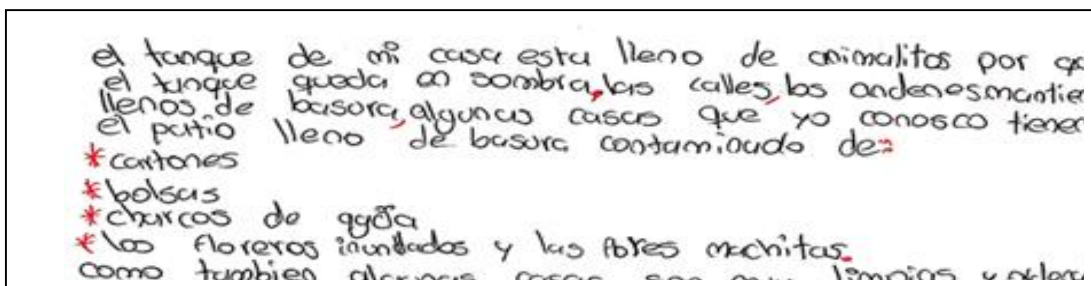 el tanque de mi casa esta lleno de animalitos por
el tanque queda en sombra, las calles, los andenes mantie
llenos de basora, algunas casas que yo conosco tienen
el patio lleno de basura contaminado de:
*cartones
*bolsas
*charcos de
*los floreros inundados y las flores machitas.
como tambien algunas casas son muy limpias y